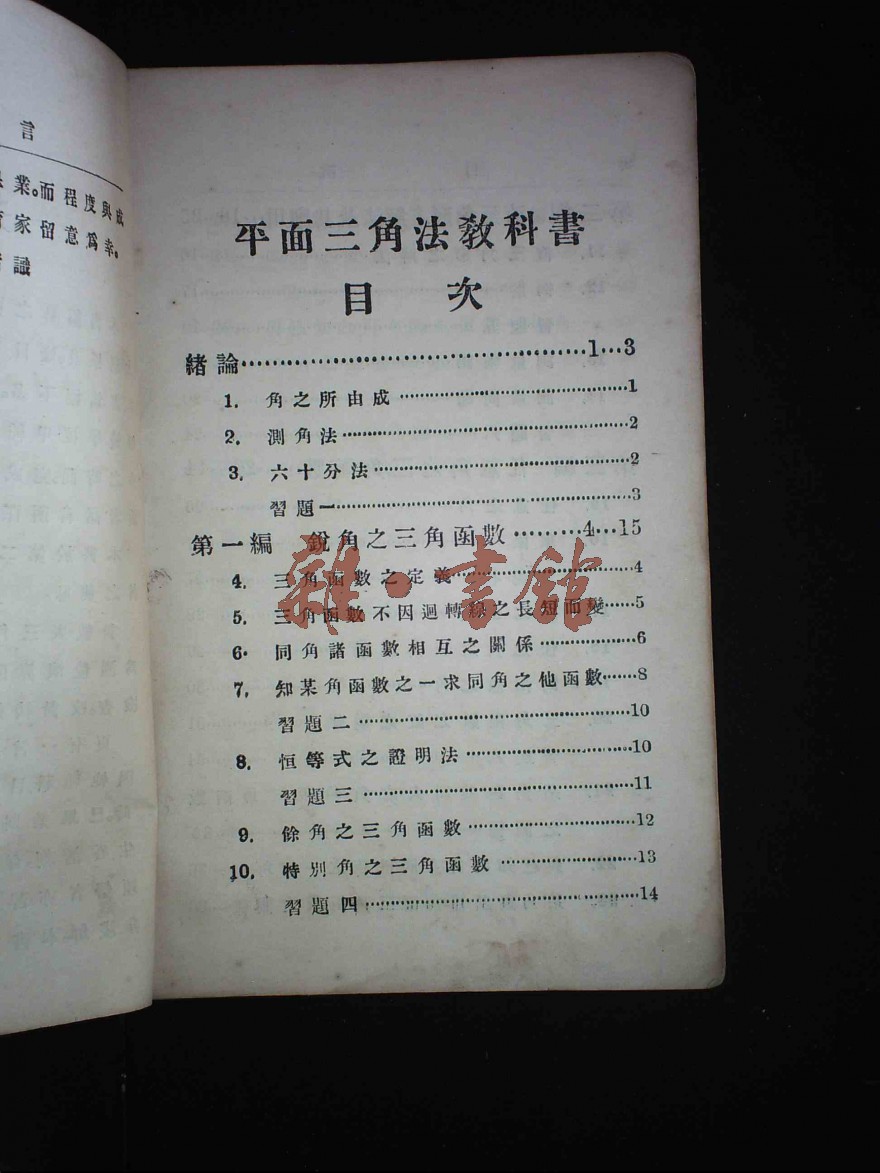 言
業。而程度與成
家留意爲幸。
識
平面三角法教科書
目 次
緒論……………………………………1…3
1. 角之所由成……………………………1
2. 測角法…………………………………2
3. 六十分法………………………………2
習題一……………………………………3
第一編 銳角之三角函數………4…15
4. 三角函數之定義………………………4
5. 三角函數不因迴轉線之長短而變……5
6. 同角諸函數相互之關係………………6
7. 知某角函數之一求同角之他函數……8
習題二……………………………………10
8. 恒等式之證明法………………………10
習題三……………………………………11
9. 餘角之三角函數………………………12
10. 特別角之三角函數…………………13
習題四……………………………………14
雜·書館